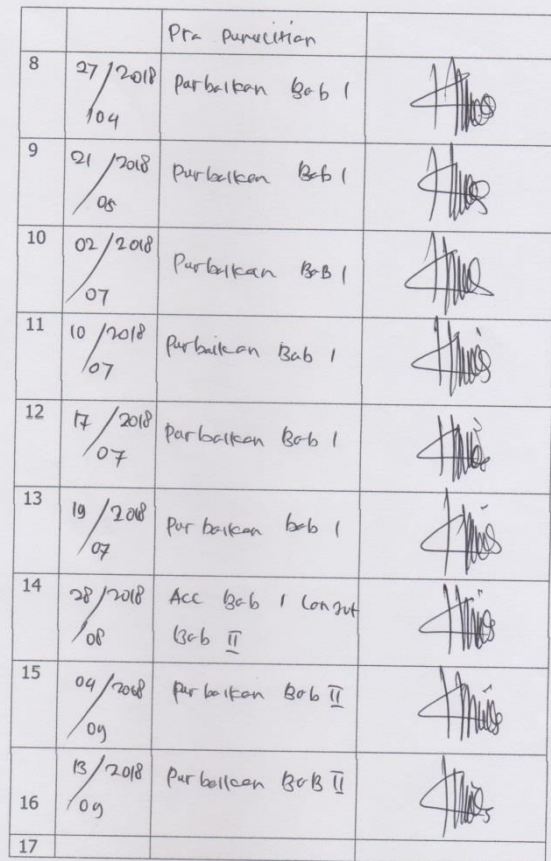 Pra Penelitian
8 27/2018 Perbaikan Bab I
/04
9 21/2018 Perbaikan Bab I
/05
10 02/2018 Perbaikan BaB I
/07
11 10/2018 Perbaikan Bab I
/07
12 17/2018 Perbaikan Bab I
/07
13 19/2018 Perbaikan bab I
/07
14 28/2018 Acc Bab I Lanjut
/08 Bab II
15 04/2018 Perbaikan Bab II
/09
13/2018 Perbaikan BaB II
16 /09
17